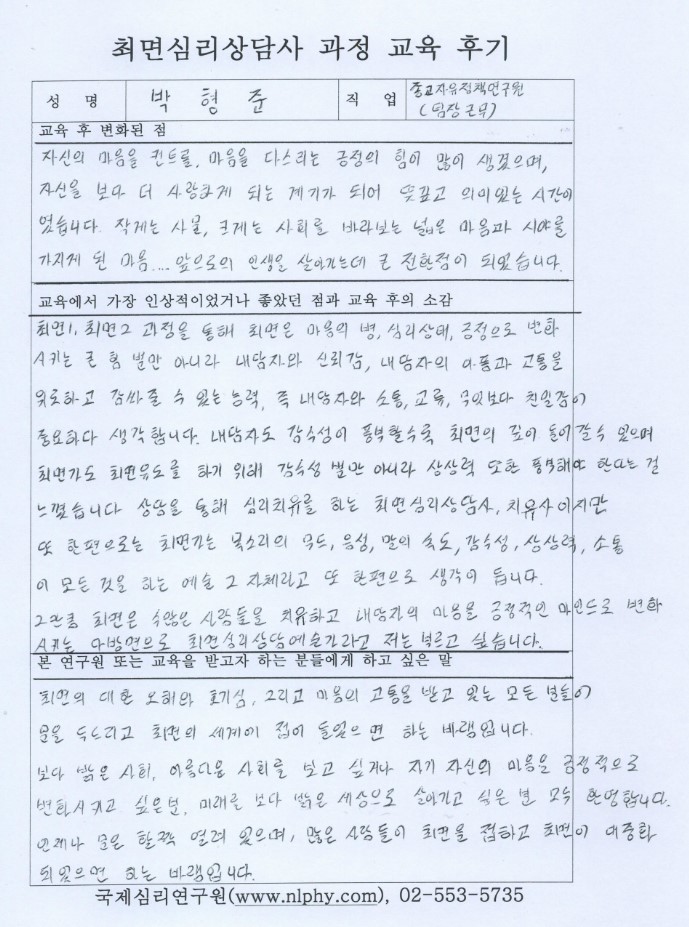 최면심리상담사 과정 교육 후기
성 명 박 형 준 직 업 종교자유정책연구원
(팀장 근무)
교육 후 변화된 점
자신의 마음을 컨트롤, 마음을 다스리는 긍정의 힘이 많이 생겼으며,
자신을 보다 더 사랑하게 되는 계기가 되어 뜻깊고 의미있는 시간이
었습니다. 작게는 사물, 크게는 사회를 바라보는 넓은 마음과 시야를
가지게 된 마음.... 앞으로의 인생을 살아가는데 큰 전환점이 되었습니다.
교육에서 가장 인상적이었거나 좋았던 점과 교육 후의 소감
최면1, 최면2 과정을 통해 최면은 마음의 병, 심리상태, 긍정으로 변화
시키는 큰 힘 뿐만 아니라 내담자와 신뢰감, 내담자의 아픔과 고통을
위로하고 감싸줄 수 있는 능력, 즉 내담자와 소통, 교류, 무엇보다 친밀감이
중요하다 생각합니다. 내담자도 감수성이 풍부할수록 최면의 깊이 들어갈수 있으며
최면가도 최면유도를 하기 위해 감수성 뿐만 아니라 상상력 또한 풍부해야 한다는 걸
느꼈습니다 상담을 통해 심리치유를 하는 최면심리상담사, 치유사이지만
또 한편으로는 최면가는 목소리의 무드, 음성, 말의 속도, 감수성, 상상력, 소통
이 모든 것을 하는 예술 그 자체라고 또 한편으로 생각이 듭니다.
그만큼 최면은 수많은 사람들을 치유하고 내담자의 마음을 긍정적인 마인드로 변화
시키는 다방면으로 최면심리상담예술가라고 저는 부르고 싶습니다.
본 연구원 또는 교육을 받고자 하는 분들에게 하고 싶은 말
최면의 대한 오해와 호기심, 그리고 마음의 고통을 받고 있는 모든 분들이
문을 두드리고 최면의 세계에 접어 들었으면 하는 바램입니다.
보다 밝은 사회, 아름다운 사회를 보고 싶거나 자기 자신의 마음을 긍정적으로
변화시키고 싶은분, 미래를 보다 밝은 세상으로 살아가고 싶은 분 모두 환영합니다.
언제나 문은 활짝 열려 있으며, 많은 사람들이 최면을 접하고 최면이 대중화
되었으면 하는 바램입니다.
국제심리연구원(www.nlphy.com), 02-553-5735